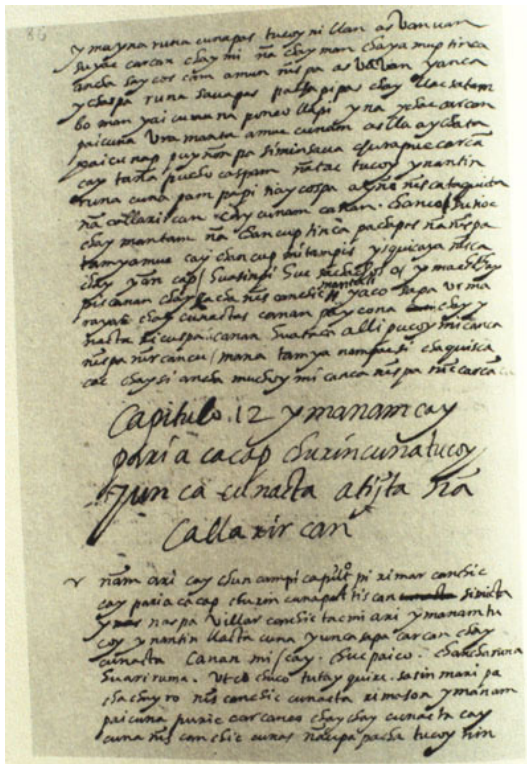 86
y maypa runa cunapas tucoy ni llan as Vanvan
suyac carcan chay mi ña chay man chaya muptinca
ancha saycos cam amuni ñispa as Vallan yanca
ychaspa runa sauapas pachapipas chay llacsatam
bo man yaicumanna poncollapi yna ychac carcan
paicuna Vra manta amuc cunam aslla aychacta
paicunap puyñonpa siminsaua churapuc carcã
cay tañã puchocaspam ñatac tucoy ynantin
runa cuna pampapi tiaycospa aylla ñiscataquita
ña callarircan chay cunam canan. chanco ñisca
chay mantam ña chancuptinca pachapas ñañispa
tamyamuc cay chancup mitanpis yiquicaya ñisca
chay yan cap / huasinpi huc sachas os y machay
pis canan chay sacha ñis canchicmanta yaco sapa urma
rayan chay cunactas canan paycona chay y
ñacta ricuspa canan huataca alli pucoy mi canca
ñispa ñircancu / mana tamya nanpacsi chaquisca
cac chaysi ancha muchoy mi canca ñispa ñic carcã
Capitulo .12 ymanam cay
paria cacap churincuna tucoy
yunca cunacta atijta ñã
callarircan
ñam ari cay chuncampi capitulopi rimarcanchic
cay paria cacap churin cunap atiscan simicta
y naspa villarcanchictacmi ari ymanam tu
coy ynantin llacta cuna yunca sapa carcan chay
cunacta canan mi / cay. chucpaico. chancharuna
huariruma. Utco chuco tutayquire. sasinmari pa
chachuyro ñis canchic cunacta rimason ymanam
paicuna puric carcanco chay chay cunacta cay
cuna ñis canchic cunas ñaupa pacha tucoy hin